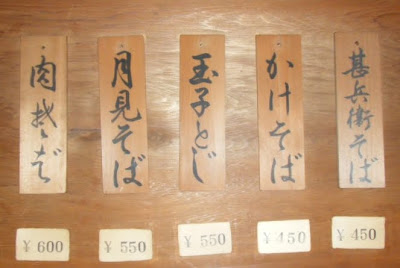 甚兵衛そば
¥ 450
かけそば
¥ 450
玉子とじ
¥ 550
月見そば
¥ 550
肉そば
¥ 600